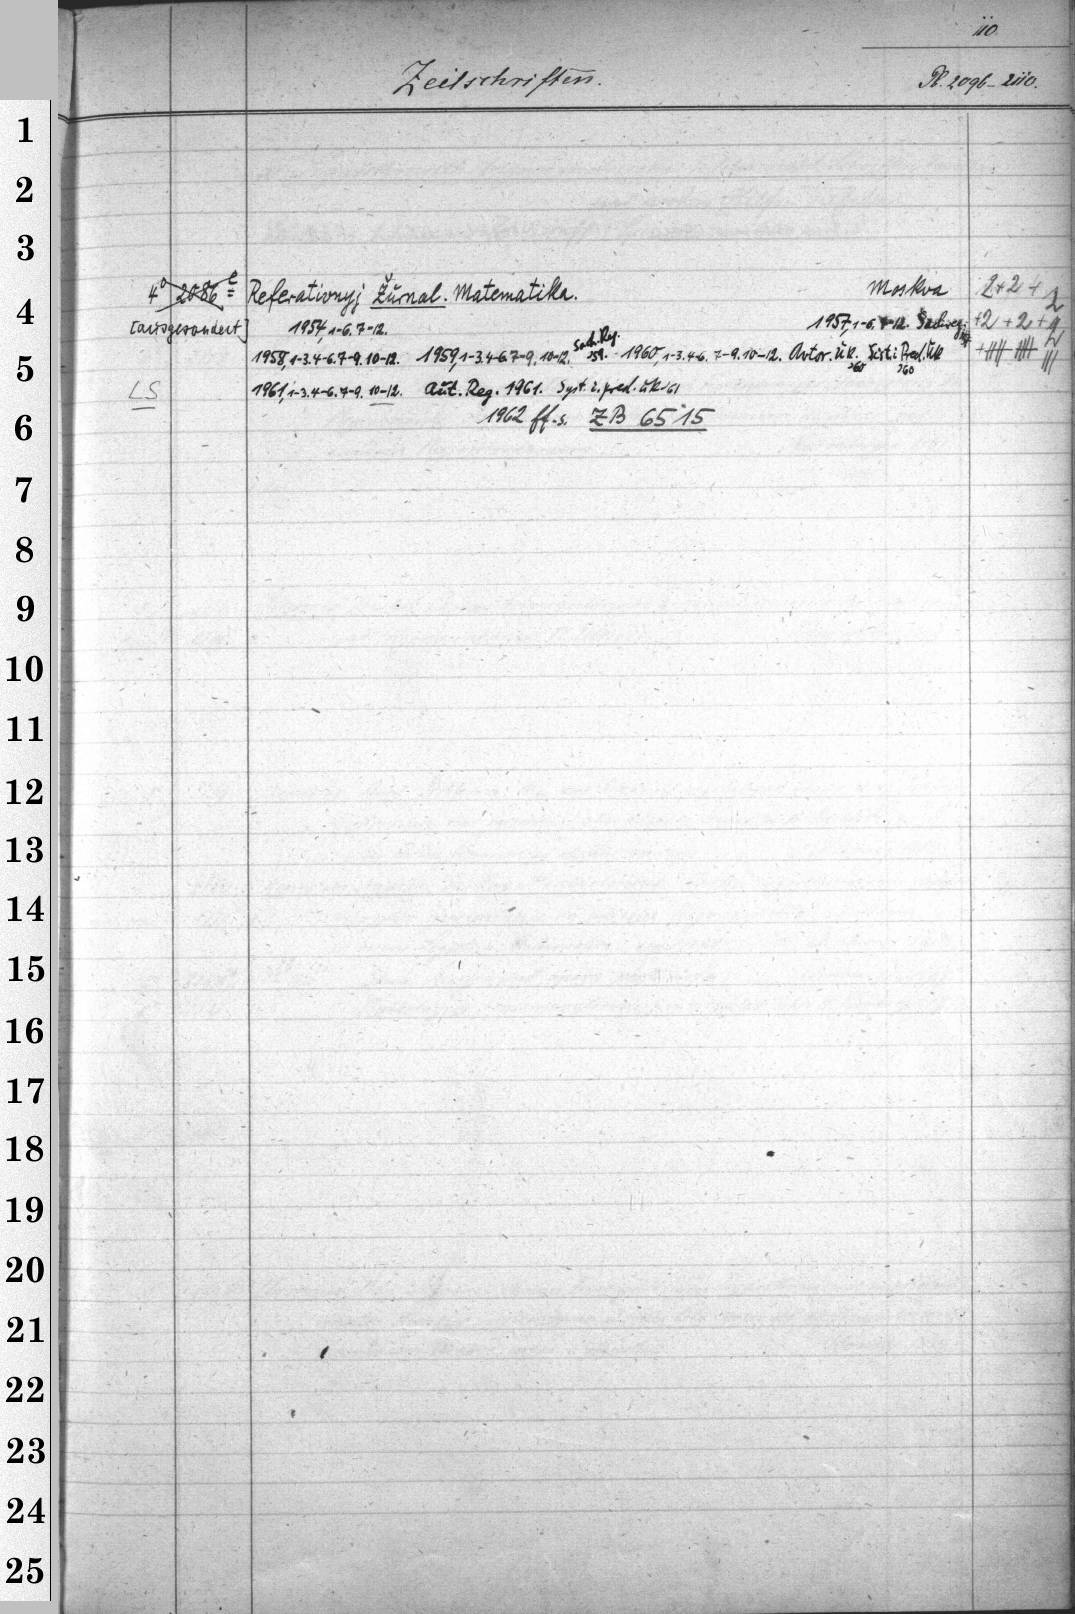 110.
Zeitschriften.
Pl. 2096-2110.
1
2
3
4° 2086 e Referativnyj Žurnal. Matematika. Moskva 2+2+2
4
[ausgesondert] 1954,1-6.7-12. 1957,1-6.7-12. Sachreg. +2+2+9
1958,1-3.4-6.7-9.10-12. 1959,1-3.4-6.7-9.10-12. Sach.Reg. 59. 1960,1-3.4-6.7-9.10-12. Avtor. Uk. 60 Sist. i Pred. Uk 60
5
LS 1961,1-3.4-6.7-9.10-12. Aut. Reg. 1961. Syst. i. pred. uk 61
1962 ff. s. ZB 6515
6
7
8
9
10
11
12
13
14
15
16
17
18
19
20
21
22
23
24
25